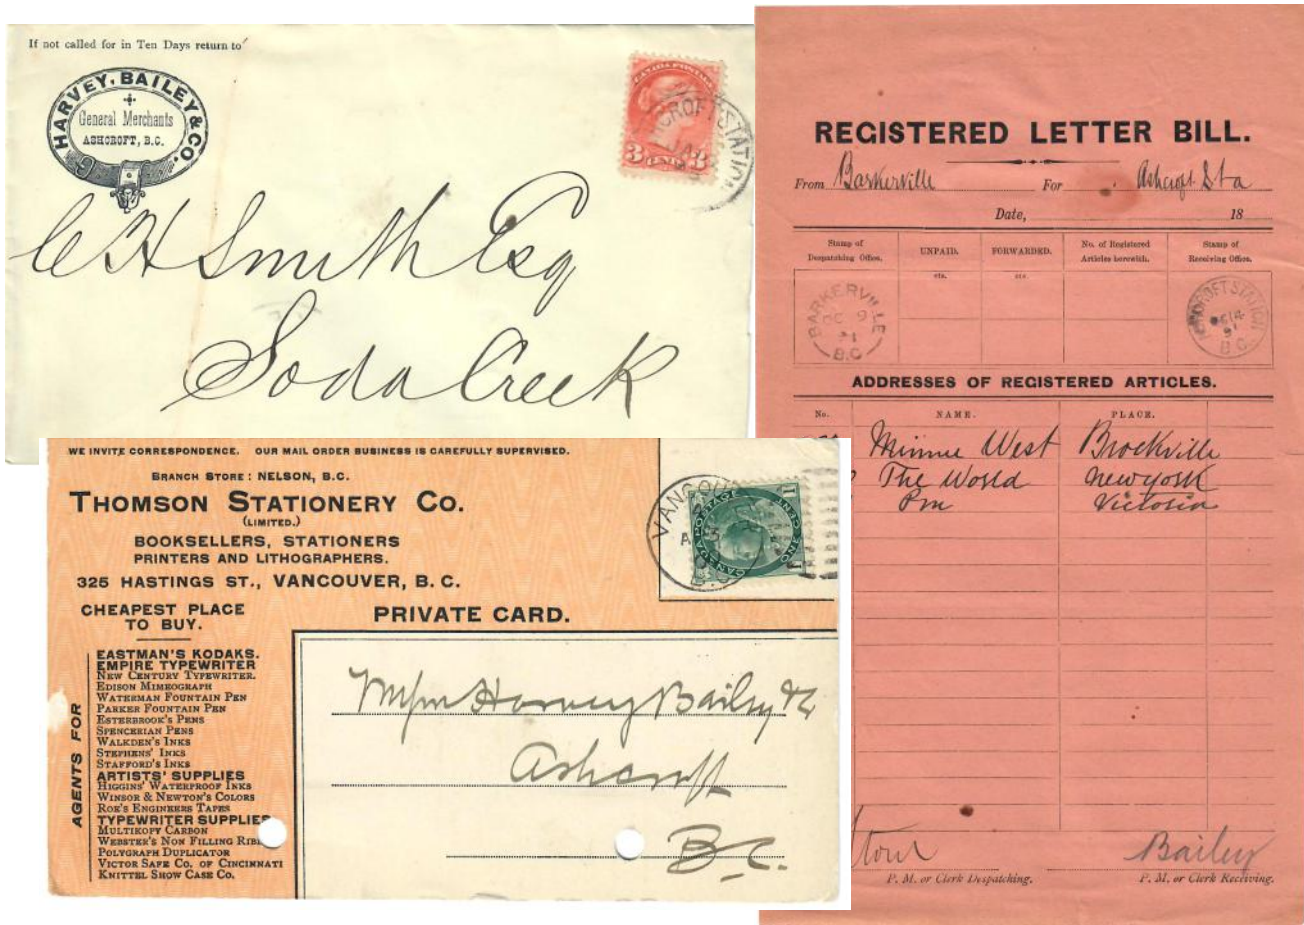 If not called for in Ten Days return to
HARVEY, BAILEY & CO.
General Merchants
ASHCROFT, B.C.
CANADA POSTAGE
3 CENTS 3
HCROFT STATION
C H Smith Esq
Soda Creek
REGISTERED LETTER BILL.
From Barkerville For Ashcroft Sta
Date, 18
Stamp of Despatching Office.
UNPAID.
FORWARDED.
No. of Registered Articles herewith.
Stamp of Receiving Office.
cts.
cts.
BARKERVILLE
DC 9
91
B.C
ASHCROFT STATION
DC 14
91
B.C.
ADDRESSES OF REGISTERED ARTICLES.
No. NAME. PLACE.
Minnie West Brockville
The World New York
Pm Victoria
Bailey
P. M. or Clerk Despatching. P. M. or Clerk Receiving.
WE INVITE CORRESPONDENCE. OUR MAIL ORDER BUSINESS IS CAREFULLY SUPERVISED.
BRANCH STORE: NELSON, B.C.
THOMSON STATIONERY CO.
(LIMITED.)
BOOKSELLERS, STATIONERS
PRINTERS AND LITHOGRAPHERS.
325 HASTINGS ST., VANCOUVER, B. C.
CHEAPEST PLACE
TO BUY.
PRIVATE CARD.
CANADA POSTAGE ONE CENT
AGENTS FOR
EASTMAN'S KODAKS.
EMPIRE TYPEWRITER
NEW CENTURY TYPEWRITER.
EDISON MIMEOGRAPH
WATERMAN FOUNTAIN PEN
PARKER FOUNTAIN PEN
ESTERBROOK'S PENS
SPENCERIAN PENS
WALKDEN'S INKS
STEPHENS' INKS
STAFFORD'S INKS
ARTISTS' SUPPLIES
HIGGINS' WATERPROOF INKS
WINSOR & NEWTON'S COLORS
ROE'S ENGINEERS TAPES
TYPEWRITER SUPPLIES
MULTIKOPY CARBON
WEBSTER'S NON FILLING RIB
POLYGRAPH DUPLICATOR
VICTOR SAFE CO. OF CINCINNATI
KNITTEL SHOW CASE CO.
Harvey Bailey & Co
Ashcroft
B.C.